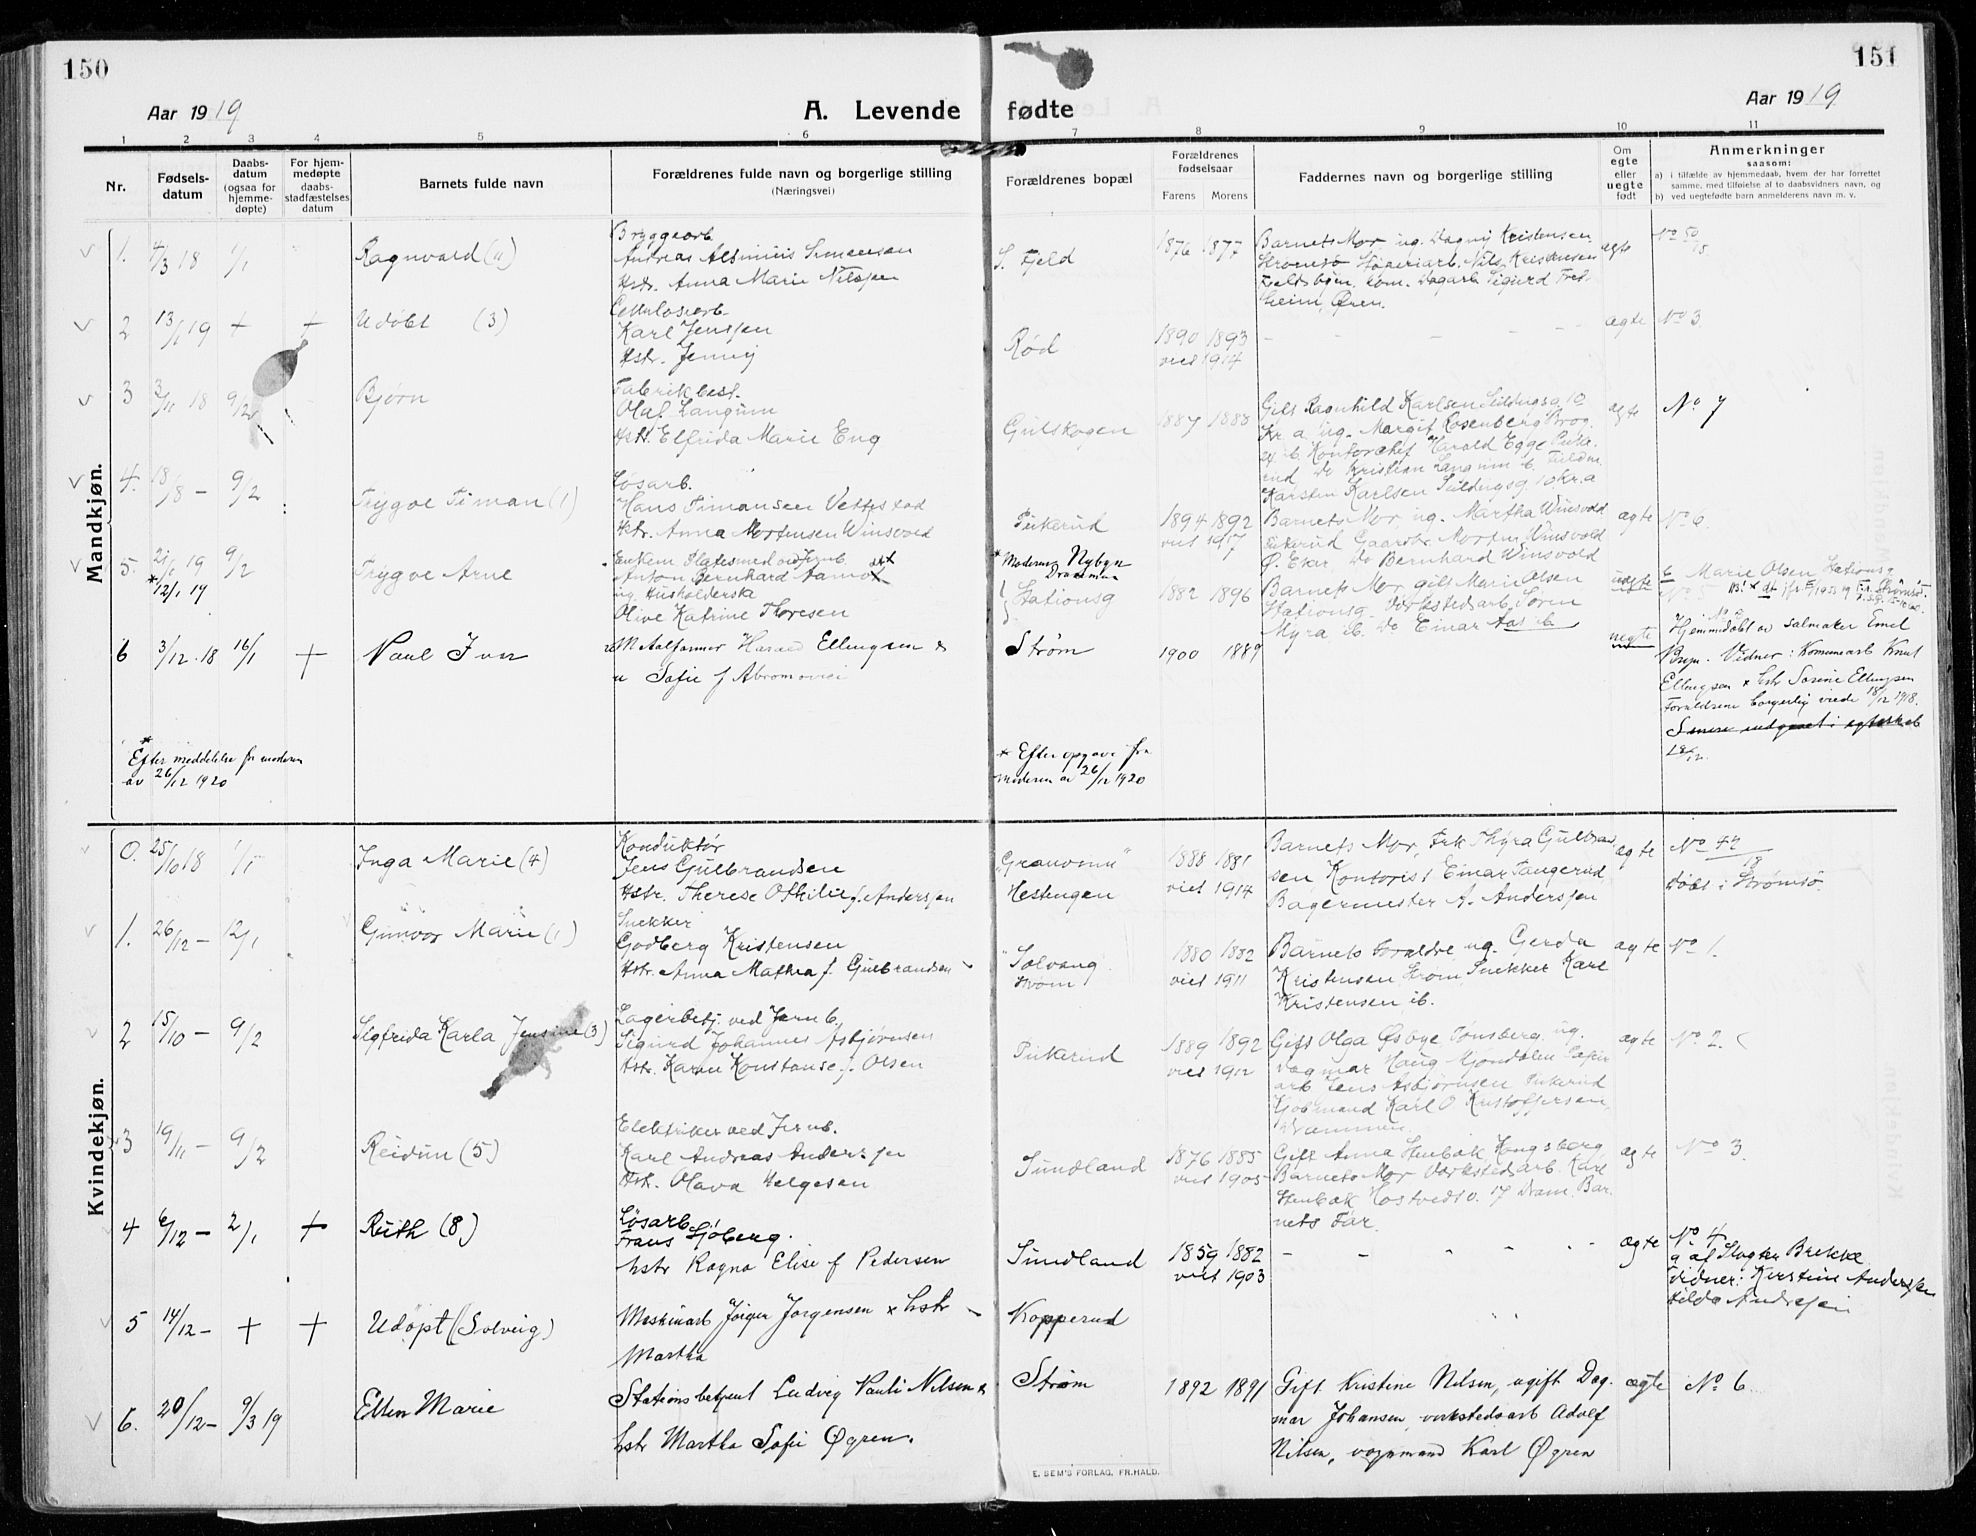 150
151
Aar 1919
A. Levende fødte
Aar 1919
1 2 3 4 5 6 7 8 9 10 11
Nr.
Fødsels-
datum
Daabs-
datum
(ogsaa for
hjemme-
døpte)
For hjem-
medøpte
daabs-
stadfæstelses
datum
Barnets fulde navn
Forældrenes fulde navn og borgerlige stilling
(Næringsvei)
Forældrenes bopæl
Forældrenes
fødselsaar
Farens Morens
Faddernes navn og borgerlige stilling
Om
egte
eller
uegte
født
Anmerkninger
saasom:
a) i tilfælde av hjemmedaab, hvem der har forrettet
samme, med tilføielse af to daabsvidners navn, og
b) ved uegtefødte barn anmelderens navn m. v.
Mandkjøn.
1. 4/3 18 1/1 Ragnvald (4)
Bryggearb
Andreas Simensen
Hstr. Anna Marie Nilssen
S. Fjeld
1876 1877
Barnets Mor ug. Dagny Kristensen
Strømsø Nils Kristensen
Dagarb Sigurd
heim, Øren.
ægte
No 50/18
2 13/1 19 + + Udøbt (3)
Cellulosearb.
Karl Jenssen
Hstr. Jenny
Rød
1890 1893
viet 1914
ægte No 3.
3 3/11 18 9/2 Bjørn
Fabrikbest.
Olaf Langum
Hstr. Elfrida Marie Eng
Gulskogen
1887 1888
Gift Ragnhild Karlsen Seildugsg 10
Kr.a ug. Margit Rosenberg
Kontorchef Harald Egge
Do Kristian Langum
Karsten Karlsen Seildugsg 10 Kr.a
ægte
No 7
4. 18/8 - 9/2 Trygve Timan (1)
Løsarb.
Hans Timansen Vettestad
Hstr. Anna Mortensen Winsvold
Pukerud
1894 1892
viet 1917
Barnets Mor ug. Martha Winsvold
Pukerud Gaardbr Morten Winsvold
Ø. Eker, Do Bernhard Winsvold
ægte No 6.
5. 21/1 19 9/2 Trygve Arne
* 12/1 19
Enkem. Pladesmed ved Jernb.
Anton Bernhard Aamo
ug. Husholderske
Olive Katrine Thoresen
* Moderens Nybyen
Drammen
Stationsg
1882 1896
Barnets Mor, gift Marie Olsen
Stationsg Værkstedsarb. Søren
Myra ib. Do Einar Aas ib
uægte
Marie Olsen Stationsg
6 3/12 18 16/1 + Paul Iver
Harald Ellingsen &
u Sofie f Abromovici
Strøm
1900 1889
uegte
Hjemmedøbt av salmaker Emil
Vidner: Komunearb Knut
Ellingsen & hstr Sosine Ellingsen
Forældrene borgerlig viede 18/12 1918.
Senere indgaaet i egteskab
18/12.
* Efter meddelelse fr moderen
av 26/12 1920
* Efter opgave fra
moderen av 26/12 1920
Kvindekjøn.
0. 25/10 18 1/1 Inga Marie (4)
Konduktør
Jens Gulbrandsen
Hstr. Therese Othilie f. Anderssen
Granvin"
Hestengen
1888 1881
viet 1914
Barnets Mor, Frk Thyra Gulbrand
sen, Kontorist Einar Tangerud,
Bagermester A. Anderssen
ægte
No 42/18
Døbt i Strømsø
1. 26/12 - 12/1 Gunvor Marie (1)
Snekker
Godberg Kristensen
Hstr. Anna Mathea f. Gulbrandsen
"Solvang
Strøm"
1880 1882
viet 1911
Barnets Foraldre, ug. Gerda
Kristensen, Strøm, Snekker Karl
Kristensen ib.
ægte No 1.
2 15/10 - 9/2 Sigfrida Karla Jensine (3)
Lagerbetj. ved Jernb.
Sigurd Johannes Asbjørnsen
Hstr. Karen Konstanse f. Olsen
Pukerud
1889 1892
viet 1912
Gift Olga Øsbye Tønsberg, ug.
Dagmar Haug Mjøndalen Papir
arb Jens Asbjørnsen Pukerud
Kjøbmand Karl O Kristoffersen,
Drammen.
ægte No 2.
3 19/11 - 9/2 Reidun (5)
Elektriker ved Jernb.
Karl Andreas Anderssen
Hstr. Olava Helgesen
Sundland
1876 1885
viet 1905
Gift Anna Stenbæk Kongsberg
Barnets Mor Værkstedsarb. Karl
Stenbæk Hostvedtv. 17 Dram. Bar-
nets Far.
ægte No 3.
4 6/12 - 2/1 + Ruth (8)
Løsarb.
Frans Sjøberg.
hstr Ragna Elise f Pedersen
Sundland
1859 1882
viet 1903
ægte
No 4
Brekke
Vidner: Kirstine Anderssen
Hilda Andresen
5 14/12 - + + Udøpt (Solveig)
Maskinarb Jørgen Jørgensen & hstr
Martha
Kopperud
6. 20/12 - 9/3 19 Ellen Marie
Stationsbetjent Ludvig Pauli Nilsen &
hstr Martha Sofie Øgren.
Strøm
1892 1891
Gift Kristine Nilsen, ugift Dag-
mar Johansen, verkstedsarb Adolf
Nilsen, vognmand Karl Øgren
ægte No 6.
E. SEM'S FORLAG, FR.HALD.